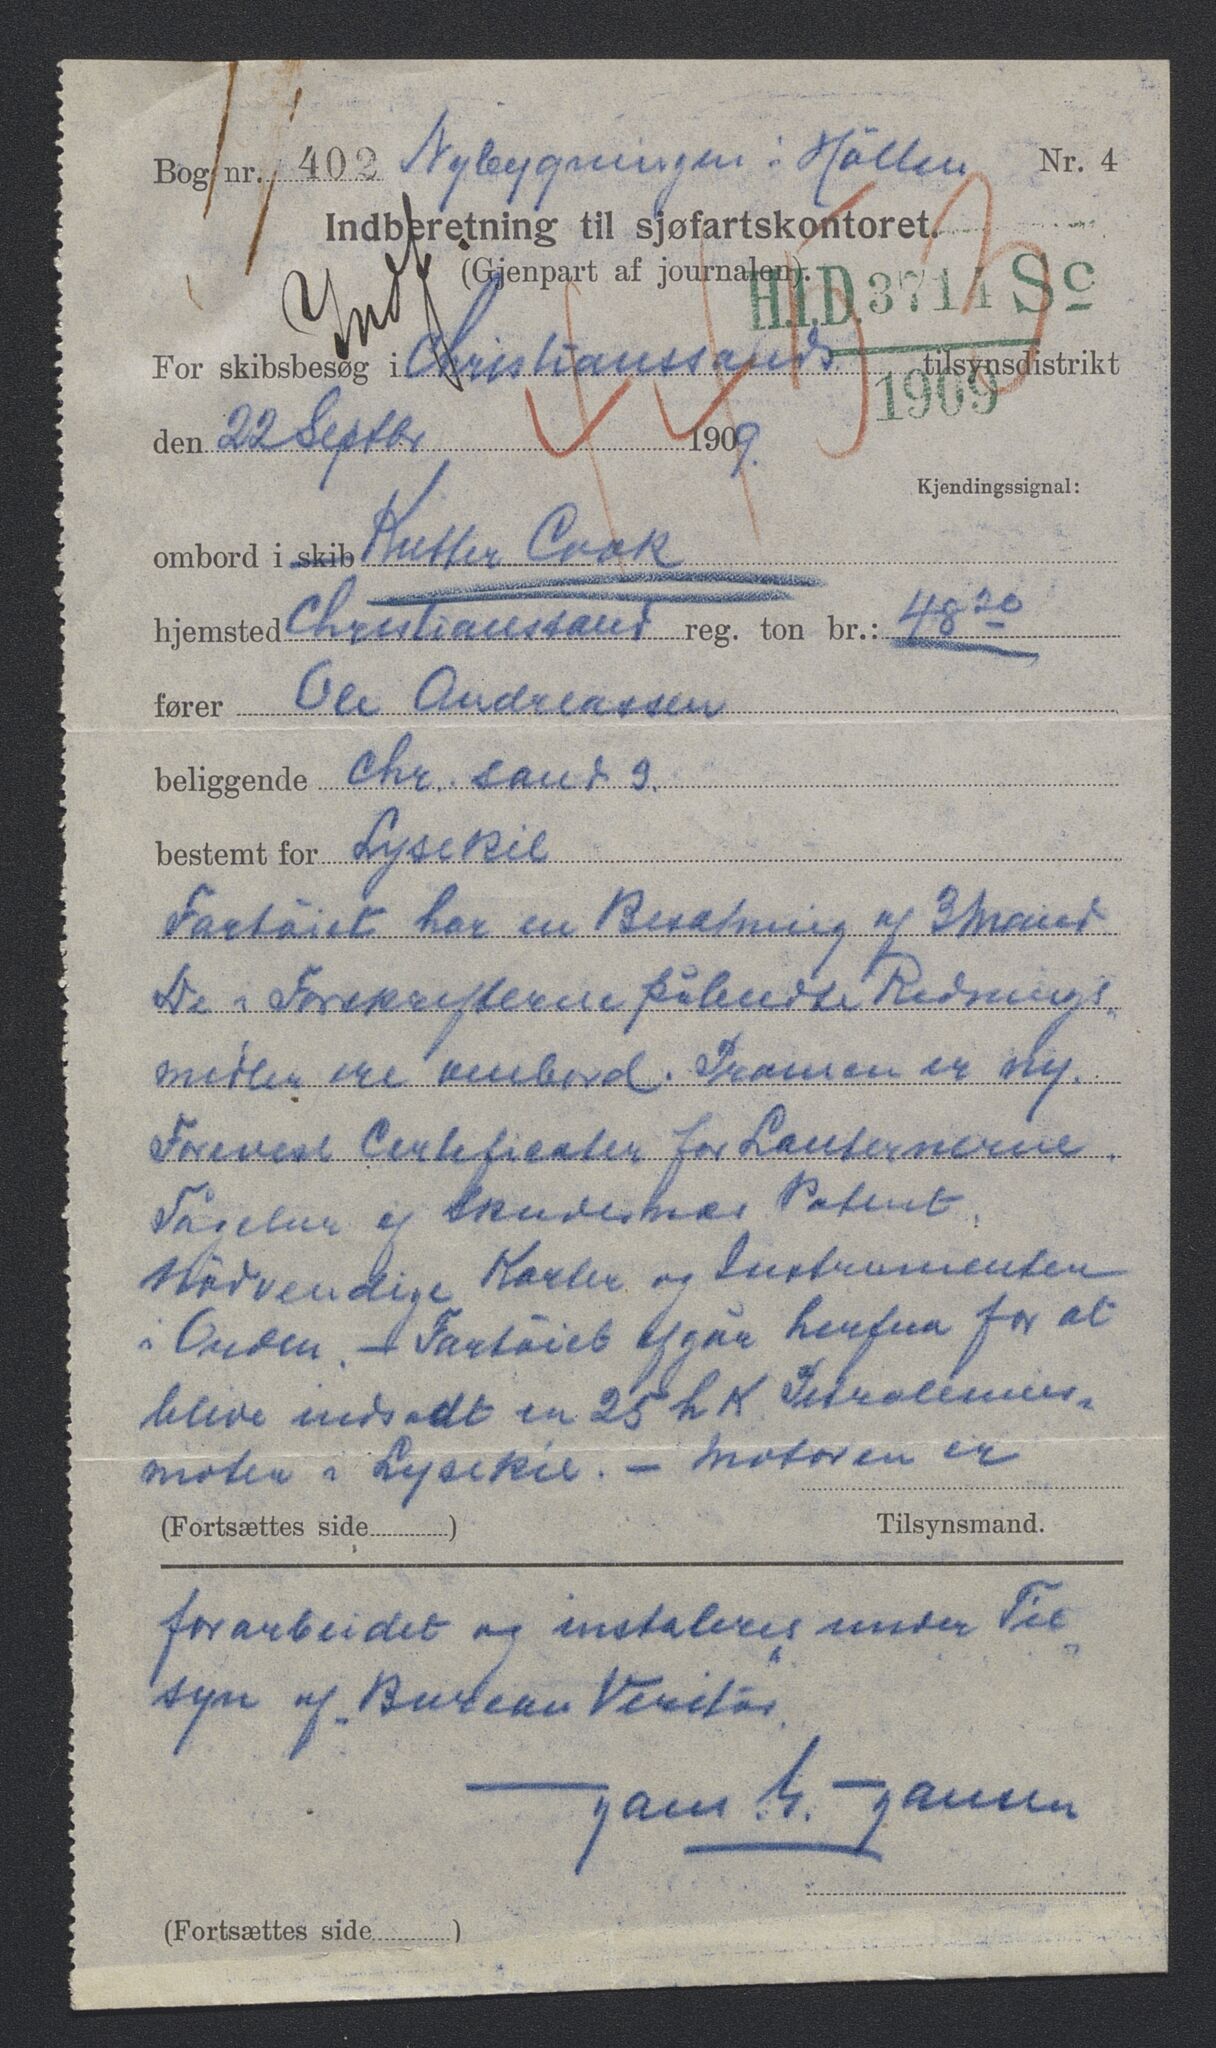 Bog nr. 402 Nybygningen i Höllen Nr. 4
Indberetning til sjøfartskontoret.
(Gjenpart af journalen).
Indf
H.I.D. 3714 Sc
1909
For skibsbesøg i Christianssands tilsynsdistrikt
den 22 Septbr 1909.
Kjendingssignal:
ombord i skib Kutter Cook
hjemsted Christianssand reg. ton br.: 48 20
fører Ole Andreassen
beliggende Chr. sand S.
bestemt for Lysekil
Fartöiet har en Besætning af 3 Mand
De i Forskrifterne påbudte Rednings-
midler ere ombord. Pramen er ny.
Forevist Certificater for Lanternerne.
Tågelur af Skudesnæs Patent.
Nödvendige Karter og Instrumenter
i Orden. – Fartöiet afgår herfra for at
blive indsadt en 25 h K Petroleums-
motor i Lysekil. – Motoren er
(Fortsættes side ) Tilsynsmand.
forarbeidet og instaleres under Til-
syn af "Bureau Veritas"
Hans E. Hansen
(Fortsættes side )